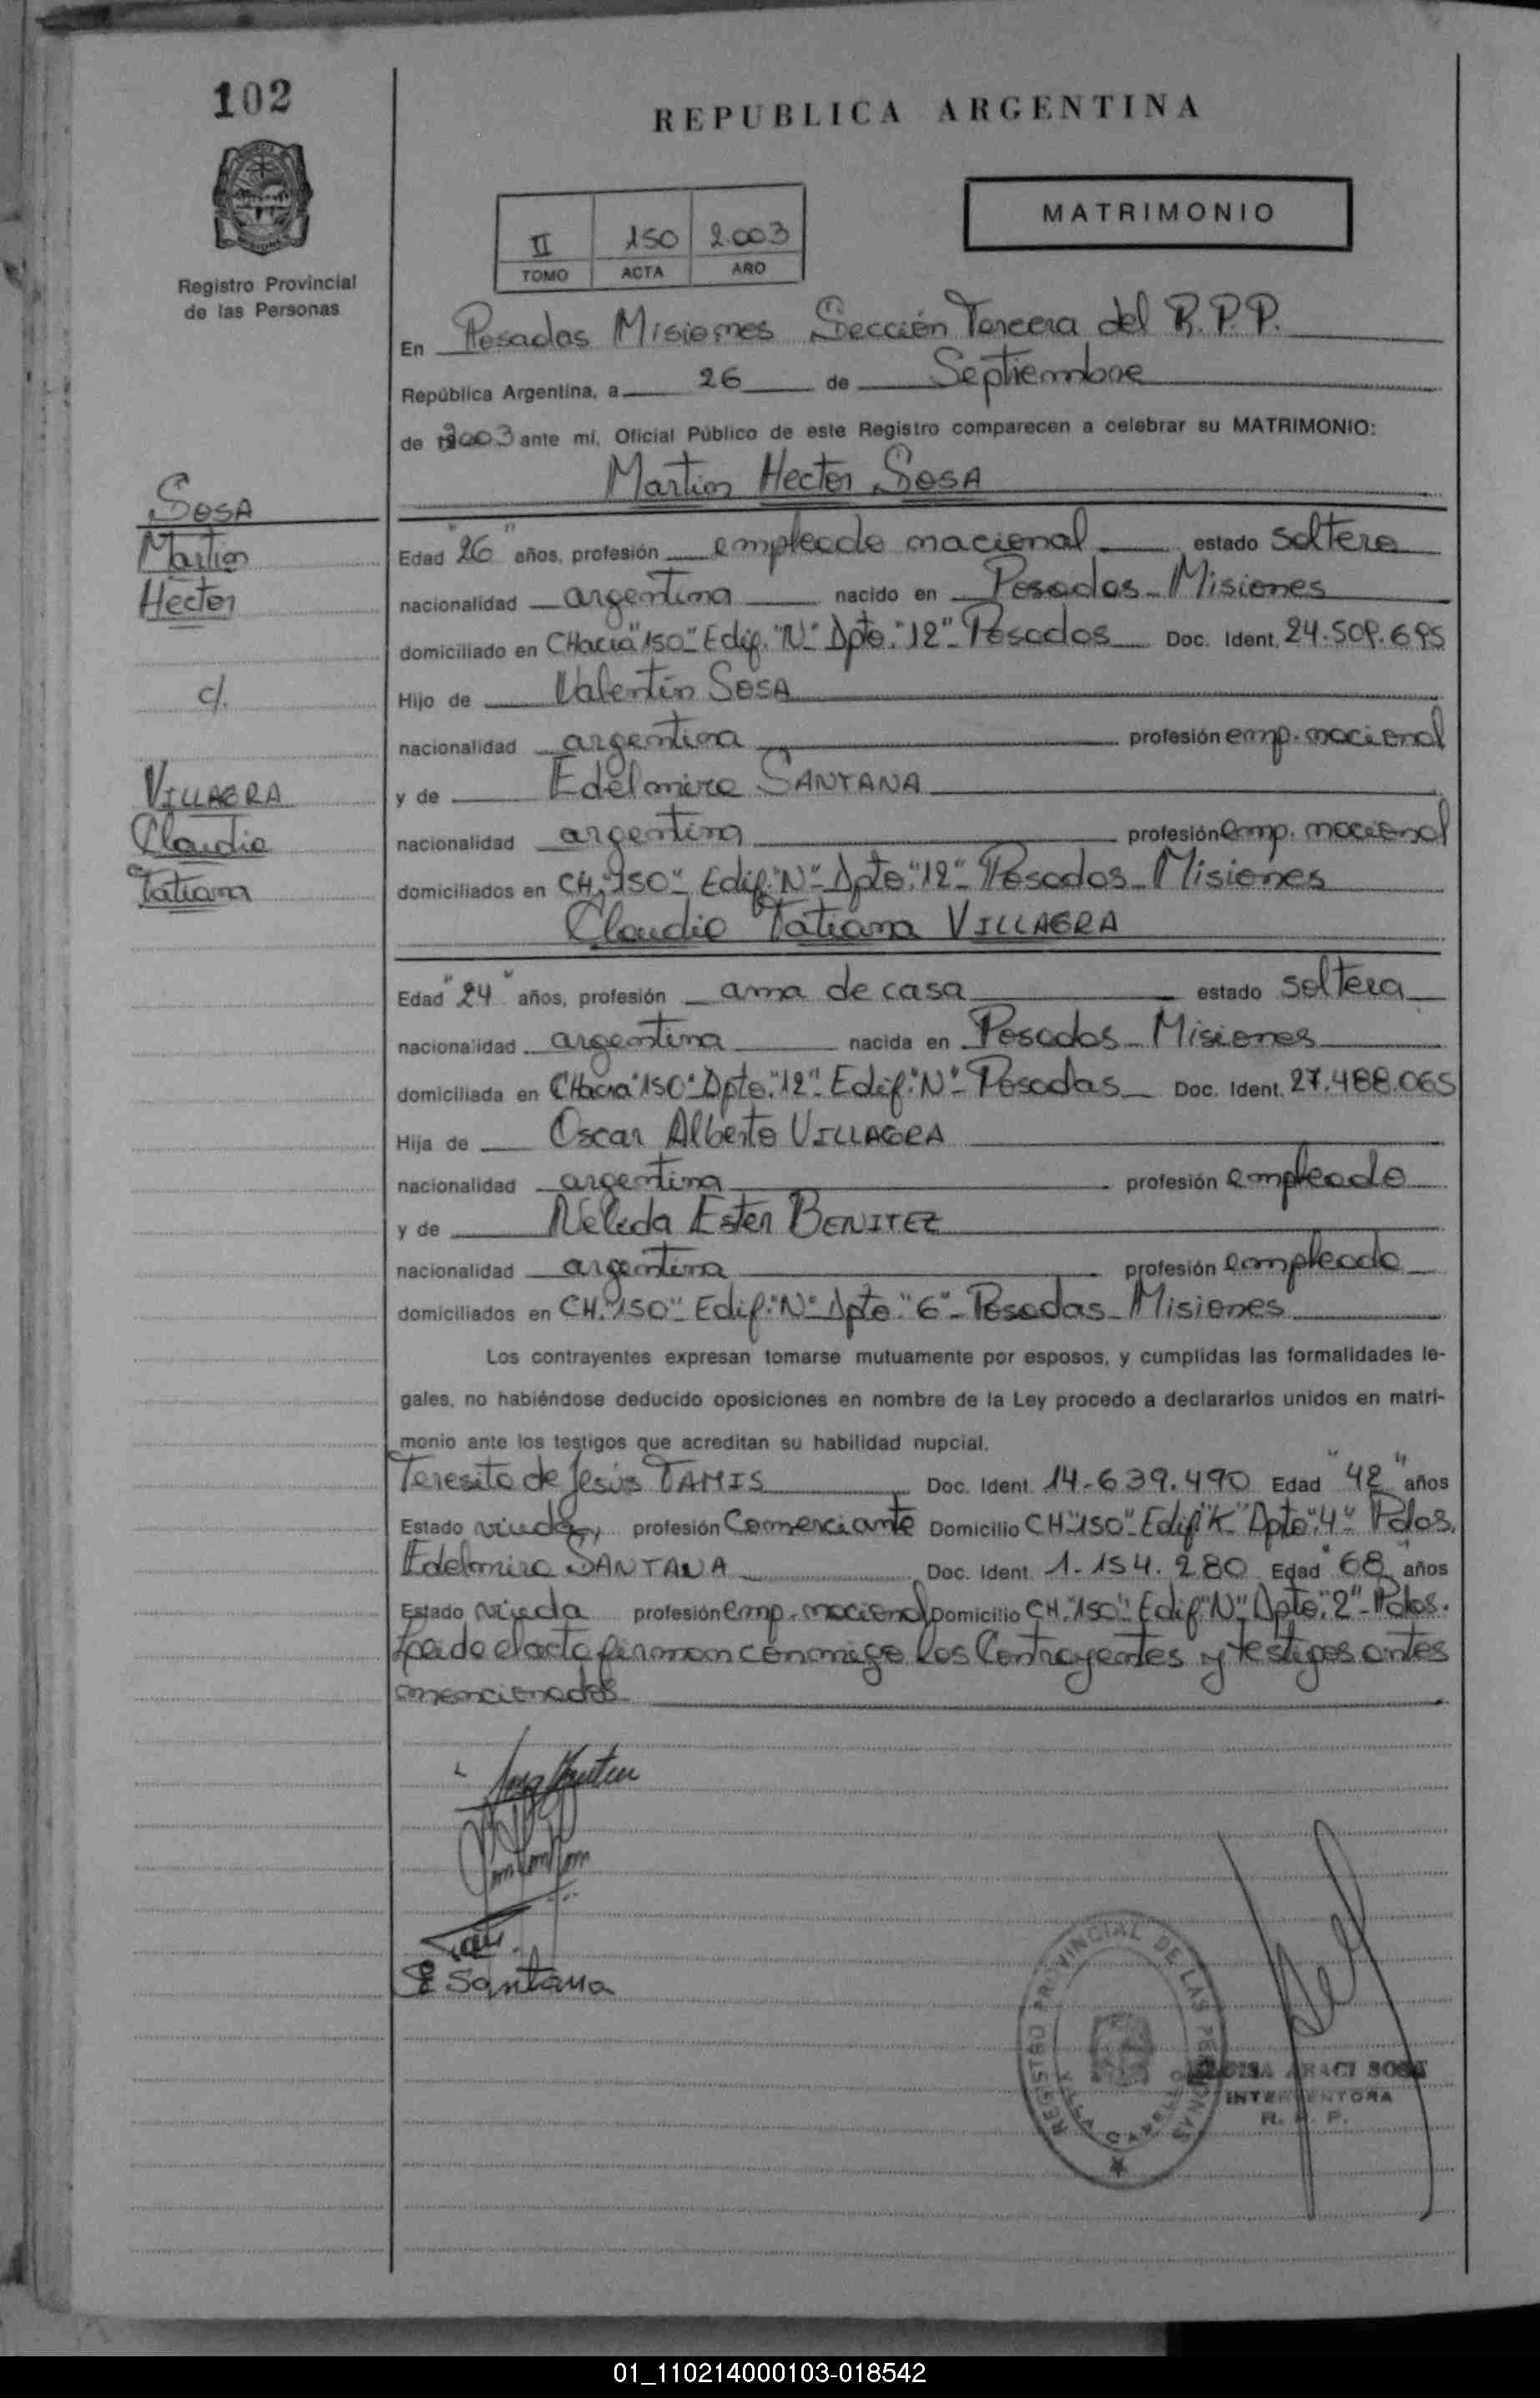 102
REPUBLICA ARGENTINA
MATRIMONIO
II 150 2.003
TOMO ACTA AÑO
Registro Provincial
de las Personas
En Posadas Misiones Sección Tercera del R.P.P.
República Argentina, a 26 de Septiembre
de 2003 ante mí, Oficial Público de este Registro comparecen a celebrar su MATRIMONIO:
Martin Hector SOSA
SOSA
Martin
Hector
c/.
VILLAGRA
Claudia
Tatiana
Edad "26" años, profesión empleado nacional estado soltero
nacionalidad argentina nacido en Posadas - Misiones
domiciliado en CHacra "150" Edif. "N" - Dpto. "12" - Posadas Doc. Ident. 24.509.695
Hijo de Valentin SOSA
nacionalidad argentina profesión emp. nacional
y de Edelmira SANTANA
nacionalidad argentina profesión emp. nacional
domiciliados en CH. "150" - Edif. "N" - Dpto. "12" - Posadas - Misiones
Claudia Tatiana VILLAGRA
Edad "24" años, profesión ama de casa estado soltera
nacionalidad argentina nacida en Posadas - Misiones
domiciliada en CHacra "150" Dpto. "12" - Edif. "N" - Posadas Doc. Ident. 27.488.065
Hija de Oscar Alberto VILLAGRA
nacionalidad argentina profesión empleado
y de Nelida Ester BENITEZ
nacionalidad argentina profesión empleada
domiciliados en CH. "150" - Edif. "N" - Dpto. "6" - Posadas - Misiones
Los contrayentes expresan tomarse mutuamente por esposos, y cumplidas las formalidades le-
gales, no habiéndose deducido oposiciones en nombre de la Ley procedo a declararlos unidos en matri-
monio ante los testigos que acreditan su habilidad nupcial.
Teresita de Jesús TAMIS Doc. Ident. 14-639.490 Edad "42" años
Estado viuda profesión Comerciante Domicilio CH "150" - Edif "K" Dpto "4" Pdas.
Edelmira SANTANA Doc. Ident. 1-154.280 Edad "68" años
Estado viuda profesión emp. nacional Domicilio CH. "150" - Edif. "N" - Dpto. "2" - Pdas.
Leido el acta firman conmigo los Contrayentes y testigos antes
mencionados
E Santana
REGISTRO PROVINCIAL DE LAS PERSONAS
ARACI SOSA
INTERVENTORA
R. P. P.
01_110214000103-018542